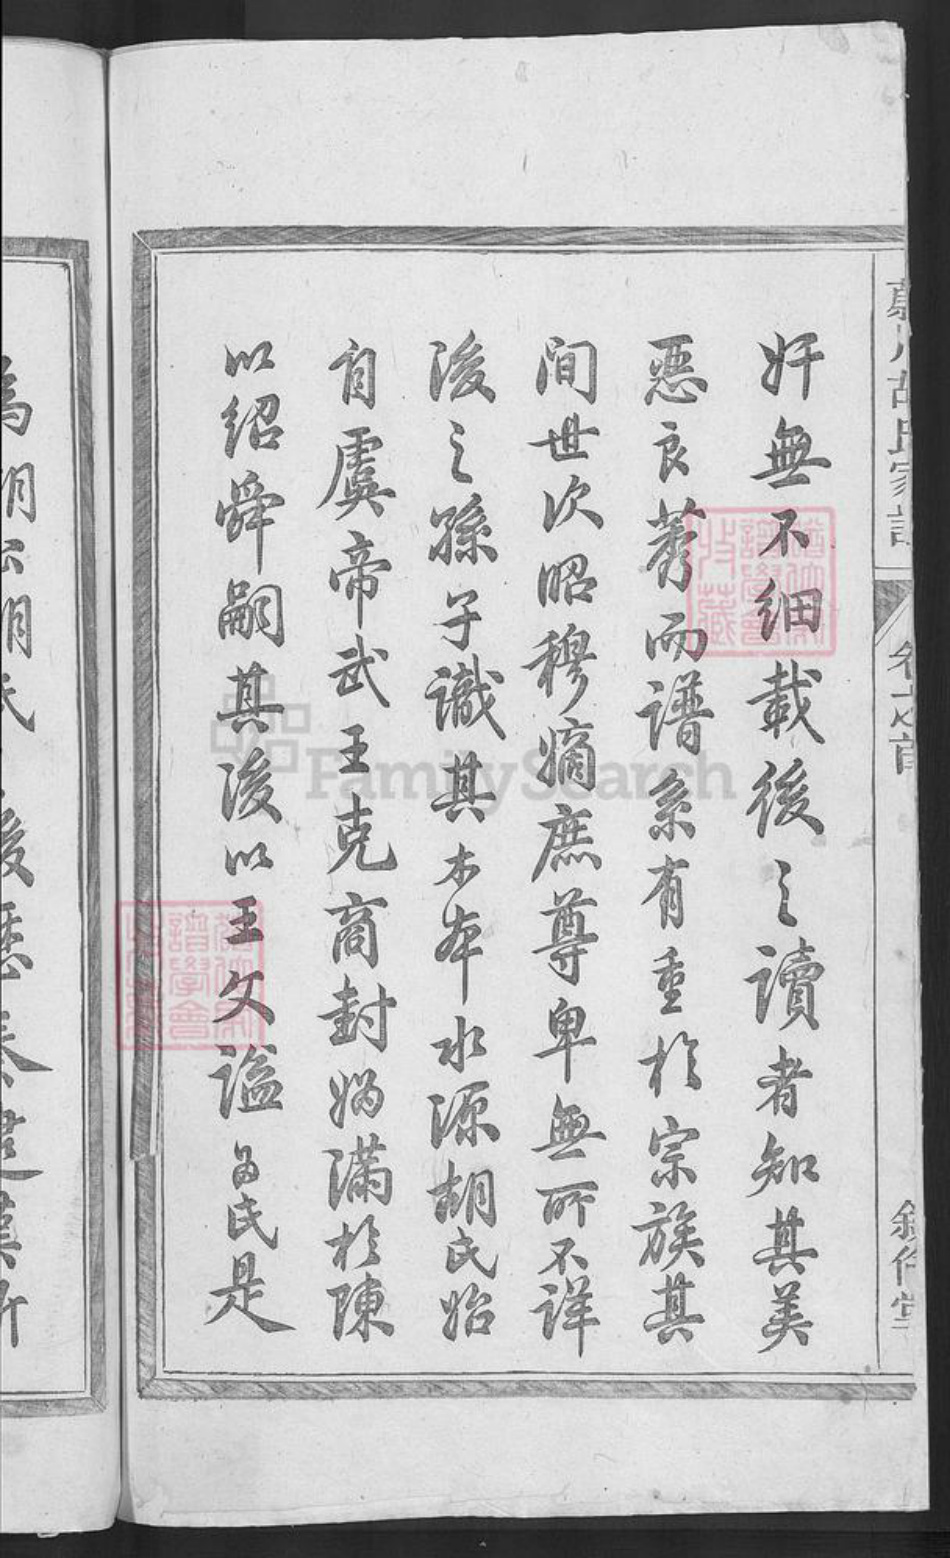 奸無不細載後之讀者知其美
惡良莠而譜系有重於宗族其
间世次昭穆嫡庶尊卑無所不詳
後之孫子識其木本水源胡氏始
自虞帝武王克商封媯滿於陳
以紹舜嗣其後以王父謚為氏是
胡氏家譜
卷之首
敘倫堂
FamilySearch
譜學會
收藏
譜學會